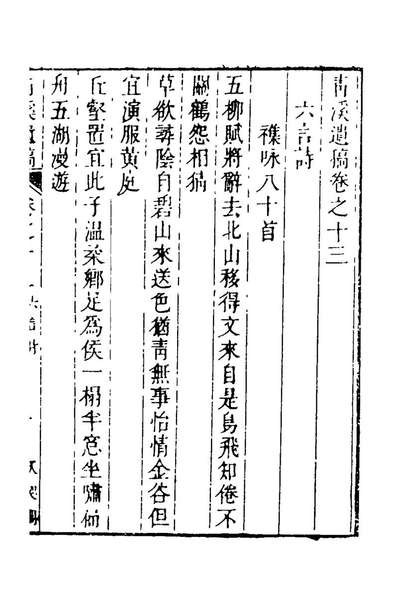 青溪遺稿卷之十三
六言詩
襍咏八十首
五柳賦將辭去北山移得文來自是鳥飛知倦不
關鶴怨相猜
草欲尋陰自碧山來送色猶青無事怡情金谷但
宜演服黃庭
丘壑置宜此子溫柔鄉足爲侯一榻半窓坐嘯扁
舟五湖漫遊
青溪遺稿